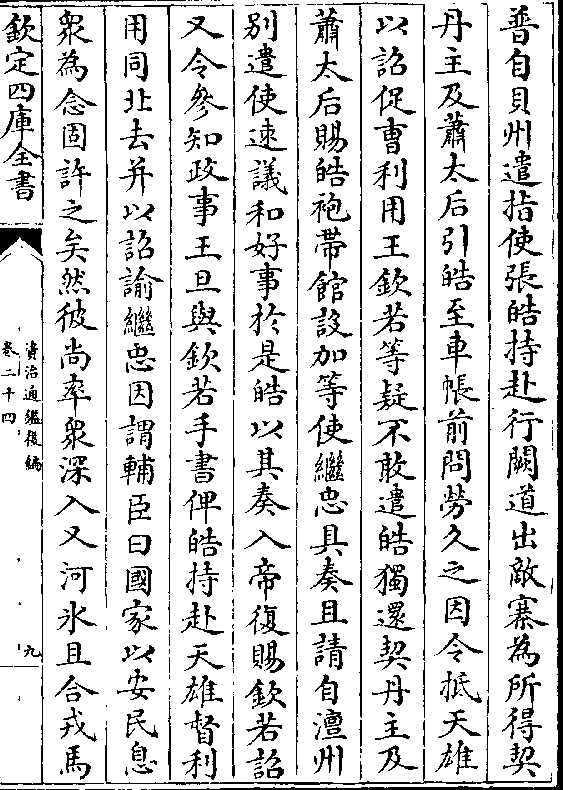 普自貝州遣指使張皓持赴行闕道出敵寨為所得契
丹主及蕭太后引皓至車帳前問勞久之因令抵天雄
以詔促曹利用王欽若等疑不敢遣皓獨還契丹主及
蕭太后賜皓袍帶館設加等使繼忠具奏且請自澶州
別遣使速議和好事於是皓以其奏入帝復賜欽若詔
又令參知政事王旦與欽若手書俾皓持赴天雄督利
用同北去并以詔諭繼忠因謂輔臣曰國家以安民息
衆為念固許之矣然彼尚率衆深入又河氷且合戎馬
欽定四庫全書
資治通鑑後編
卷二十四
九